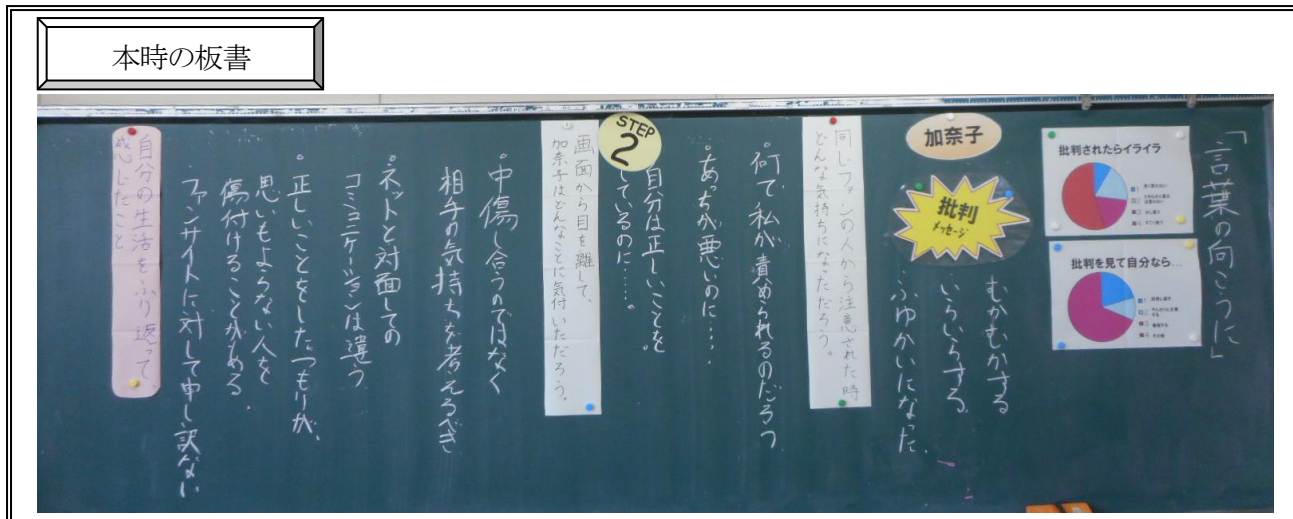 本時の板書
「言葉の向こうに」
批判されたらイライラ
批判を見て自分なら…
加奈子
批判
メッセージ
むかむかする
いらいらする
ふゆかいになった
同じファンの人から注意された時
どんな気持ちになっただろう。
・何で私が責められるのだろう
・あっちが悪いのに……
・自分は正しいことを
しているのに……。
STEP
2
画面から目を離して、
加奈子はどんなことに気付いただろう。
・中傷し合うのではなく
相手の気持ちを考えるべき
・ネットと対面しての
コミュニケーションは違う
・正しいことをしたつもりが、
思いもよらない人を
傷付けることがある
ファンサイトに対して申し訳ない
自分の生活をふり返って、
感じたこと